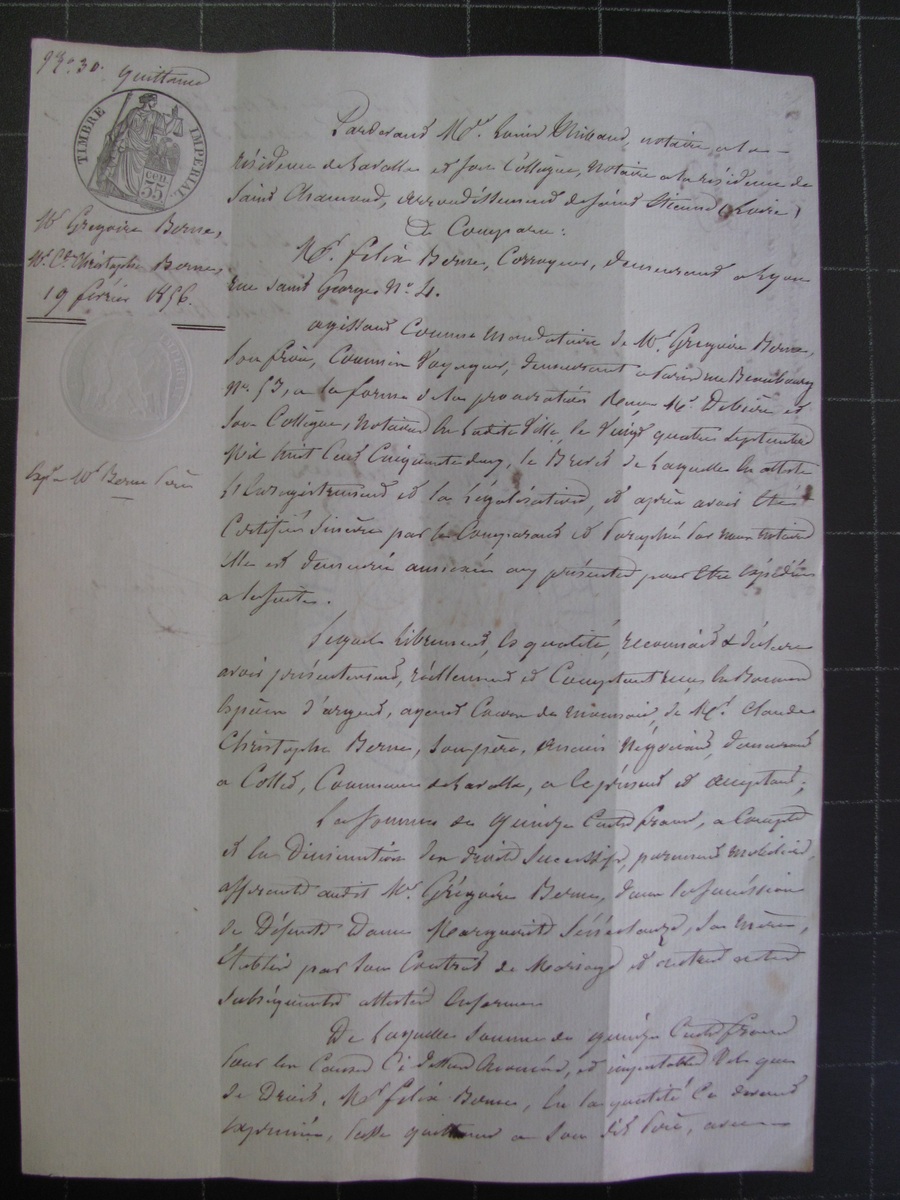 quittance
TIMBRE IMPERIAL
55 cen
Mr Grégoire Berne,
Mr Cde Christophe Berne
19 février 1856.
expn Mr Berne père
Pardevant Me. Thibaud, notaire à la
résidence de et son Collègue, Notaire à la résidence de
Saint Chamond, arrondissement de Saint Etienne (Loire)
A Comparu:
Mr. Félix Berne, Corroyeur, demeurant à Lyon
rue Saint Georges No. 4.
agissant Comme Mandataire de Mr. Grégoire Berne,
Son frère, Commis Voyageur, demeurant à Paris rue Beaubourg
No. 53, à la forme de la procuration Reçue Me. et
Son Collègue, Notaires en ladite Ville le Vingt quatre Septembre
Mil huit Cent Cinquante cinq, le Brevet de Laquelle en atteste
L'Enregistrement et la Légalisation, et après avoir été
Certifié Sincère par le Comparant et Paraphé par nous notaires
Elle est demeurée annexée aux présentes pour être expédiée
à la suite.
Lequel Librement, ès qualité, reconnait & déclare
avoir présentement, réellement et Comptant reçu en Bonnes
Espèces d'argent, ayant Cours de monnaie, de Mr. Claude
Christophe Berne, Son père, Ancien Négociant, demeurant
à Commune de à ce présent et acceptant;
La Somme de quinze Cents francs, à Compte
et en Diminution des droits Successifs, purement mobiliers,
afférents audit Mr. Grégoire Berne, dans la Succession
de Défunte Dame Marguerite Sa Mère,
Etablis par Son Contrat de Mariage et autres actes
Subséquents attestés Enformes
De Laquelle Somme de quinze Cents francs
Pour les Causes Ci dessus énoncées, et imputable Tels que
de Droit, Mr. Félix Berne, En la qualité Ci devant
exprimée, passe quittance à Son dit Père, avec